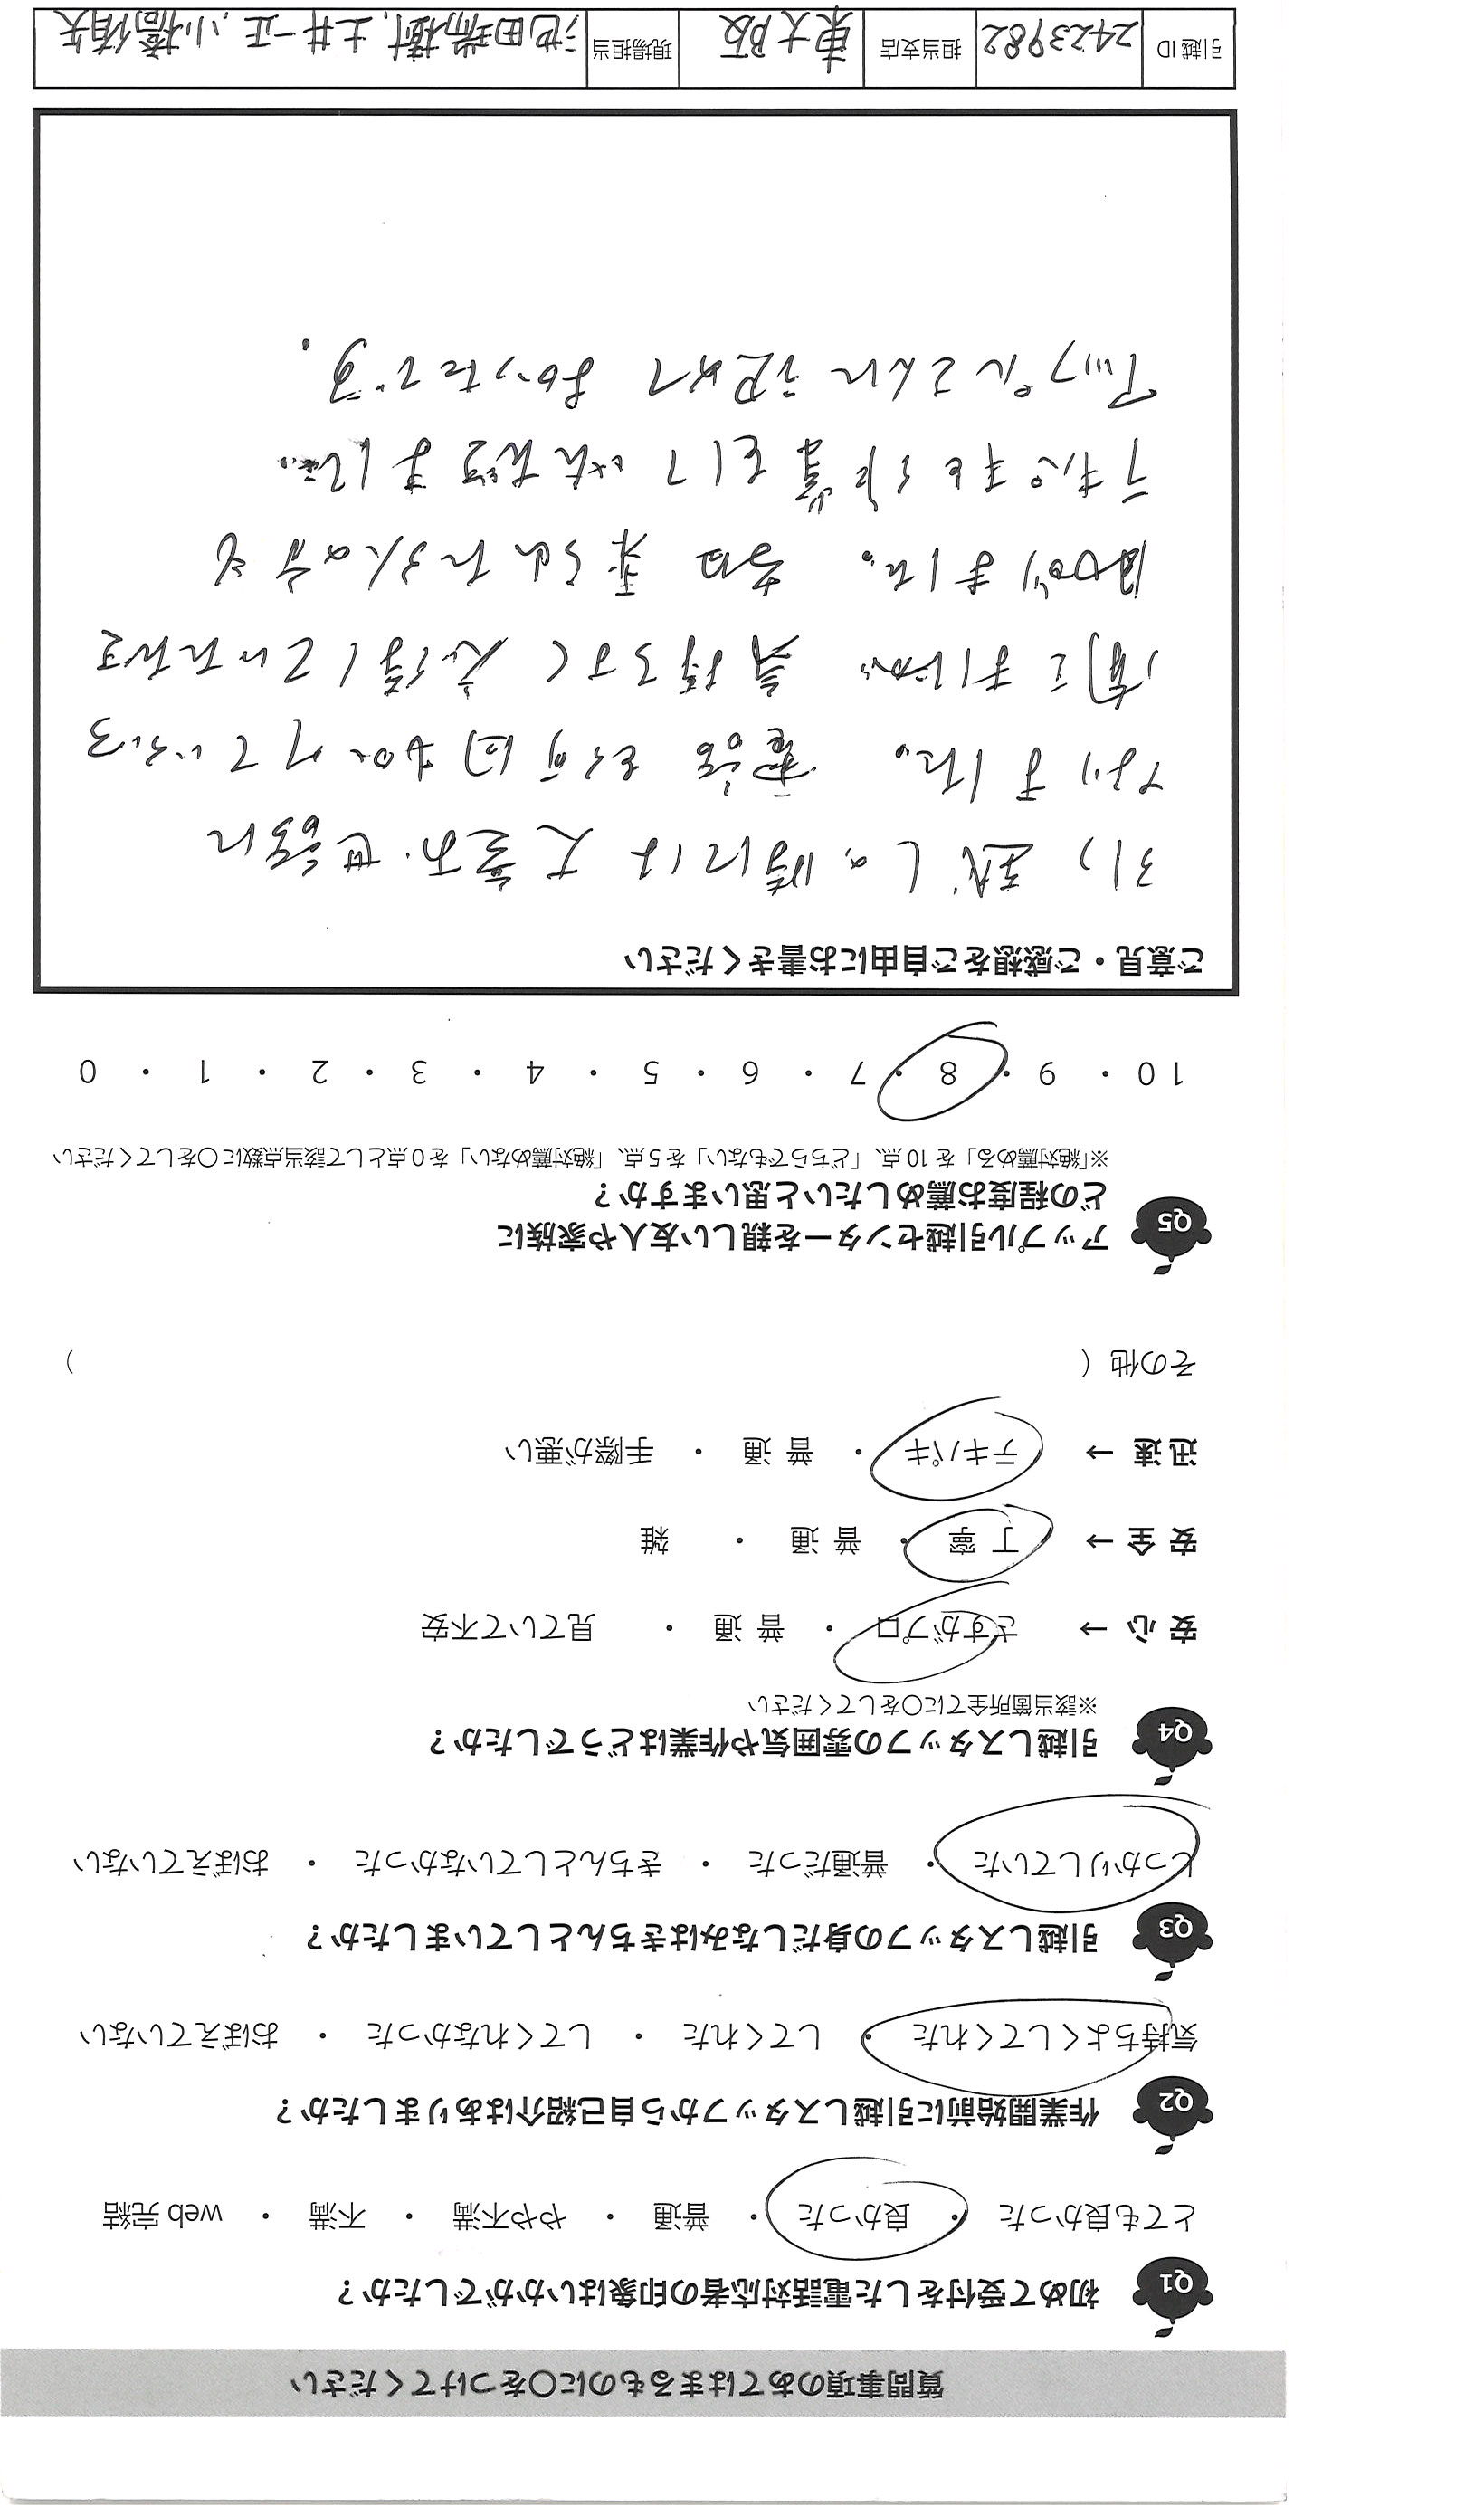 質問事項のあてはまるものに○をつけてください
Q1 初めて受付をした電話対応者の印象はいかがでしたか?
とても良かった ・ 良かった ・ 普通 ・ やや不満 ・ 不満 ・ web完結
Q2 作業開始前に引越しスタッフから自己紹介はありましたか?
気持ちよくしてくれた ・ してくれた ・ してくれなかった ・ おぼえていない
Q3 引越しスタッフの身だしなみはきちんとしていましたか?
しっかりしていた ・ 普通だった ・ きちんとしていなかった ・ おぼえていない
Q4 引越しスタッフの雰囲気や作業はどうでしたか?
※該当箇所全てに○をしてください
安心 → さすがプロ ・ 普通 ・ 見ていて不安
安全 → 丁寧 ・ 普通 ・ 雑
迅速 → テキパキ ・ 普通 ・ 手際が悪い
その他 ( )
Q5 アップル引越センターを親しい友人や家族に
どの程度お薦めしたいと思いますか?
※「絶対薦める」を10点、「どちらでもない」を5点、「絶対薦めない」を0点として該当点数に○をしてください
10 ・ 9 ・ 8 ・ 7 ・ 6 ・ 5 ・ 4 ・ 3 ・ 2 ・ 1 ・ 0
ご意見・ご感想をご自由にお書きください
引っ越しの時には大変お世話に
なりました。電話を何回もかけていろいろ
聞きましたが気持ちすく応得していただき
助かりました。当日来られた3人の方も
テキパキと仕事をしていただきました。
アップルさんに決めてよかったです。
引越ID 2423982 担当支店 東大阪 現場担当 池田瑞樹、土井一正、小橋侑矢